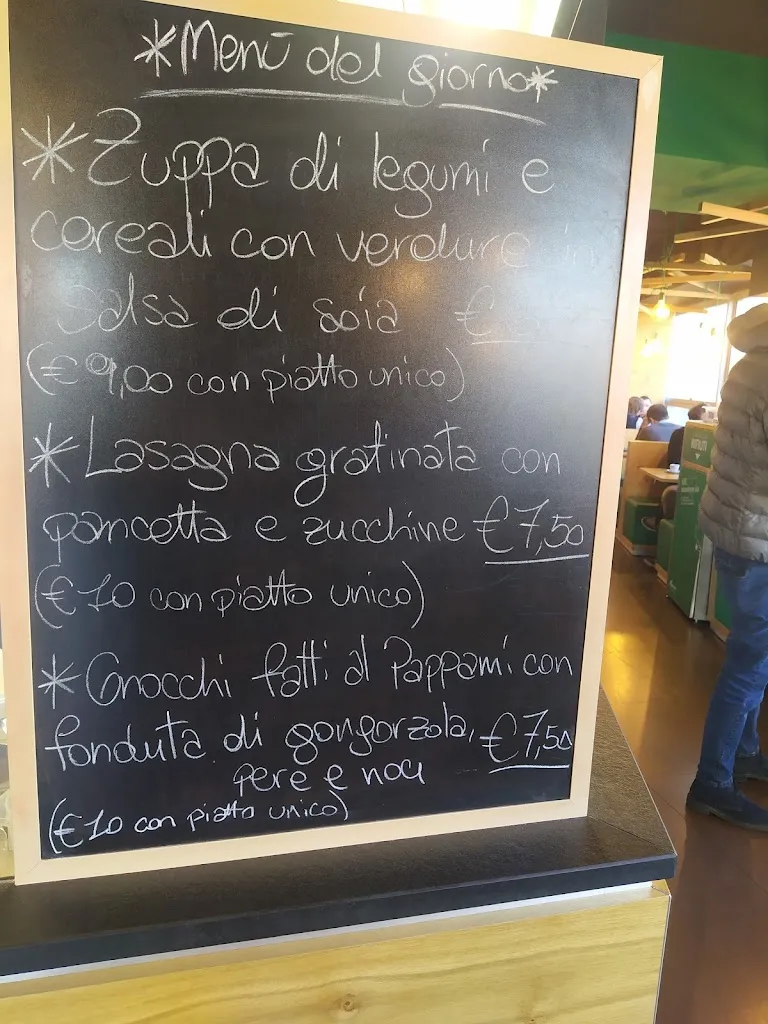 *Menù del giorno*
*Zuppa di legumi e
cereali con verdure in
salsa di soia €
(€ 9,00 con piatto unico)
*Lasagna gratinata con
pancetta e zucchine € 7,50
(€ 10 con piatto unico)
*Gnocchi fatti al Pappami con
fonduta di gongorzola, € 7,50
pere e noci
(€ 10 con piatto unico)